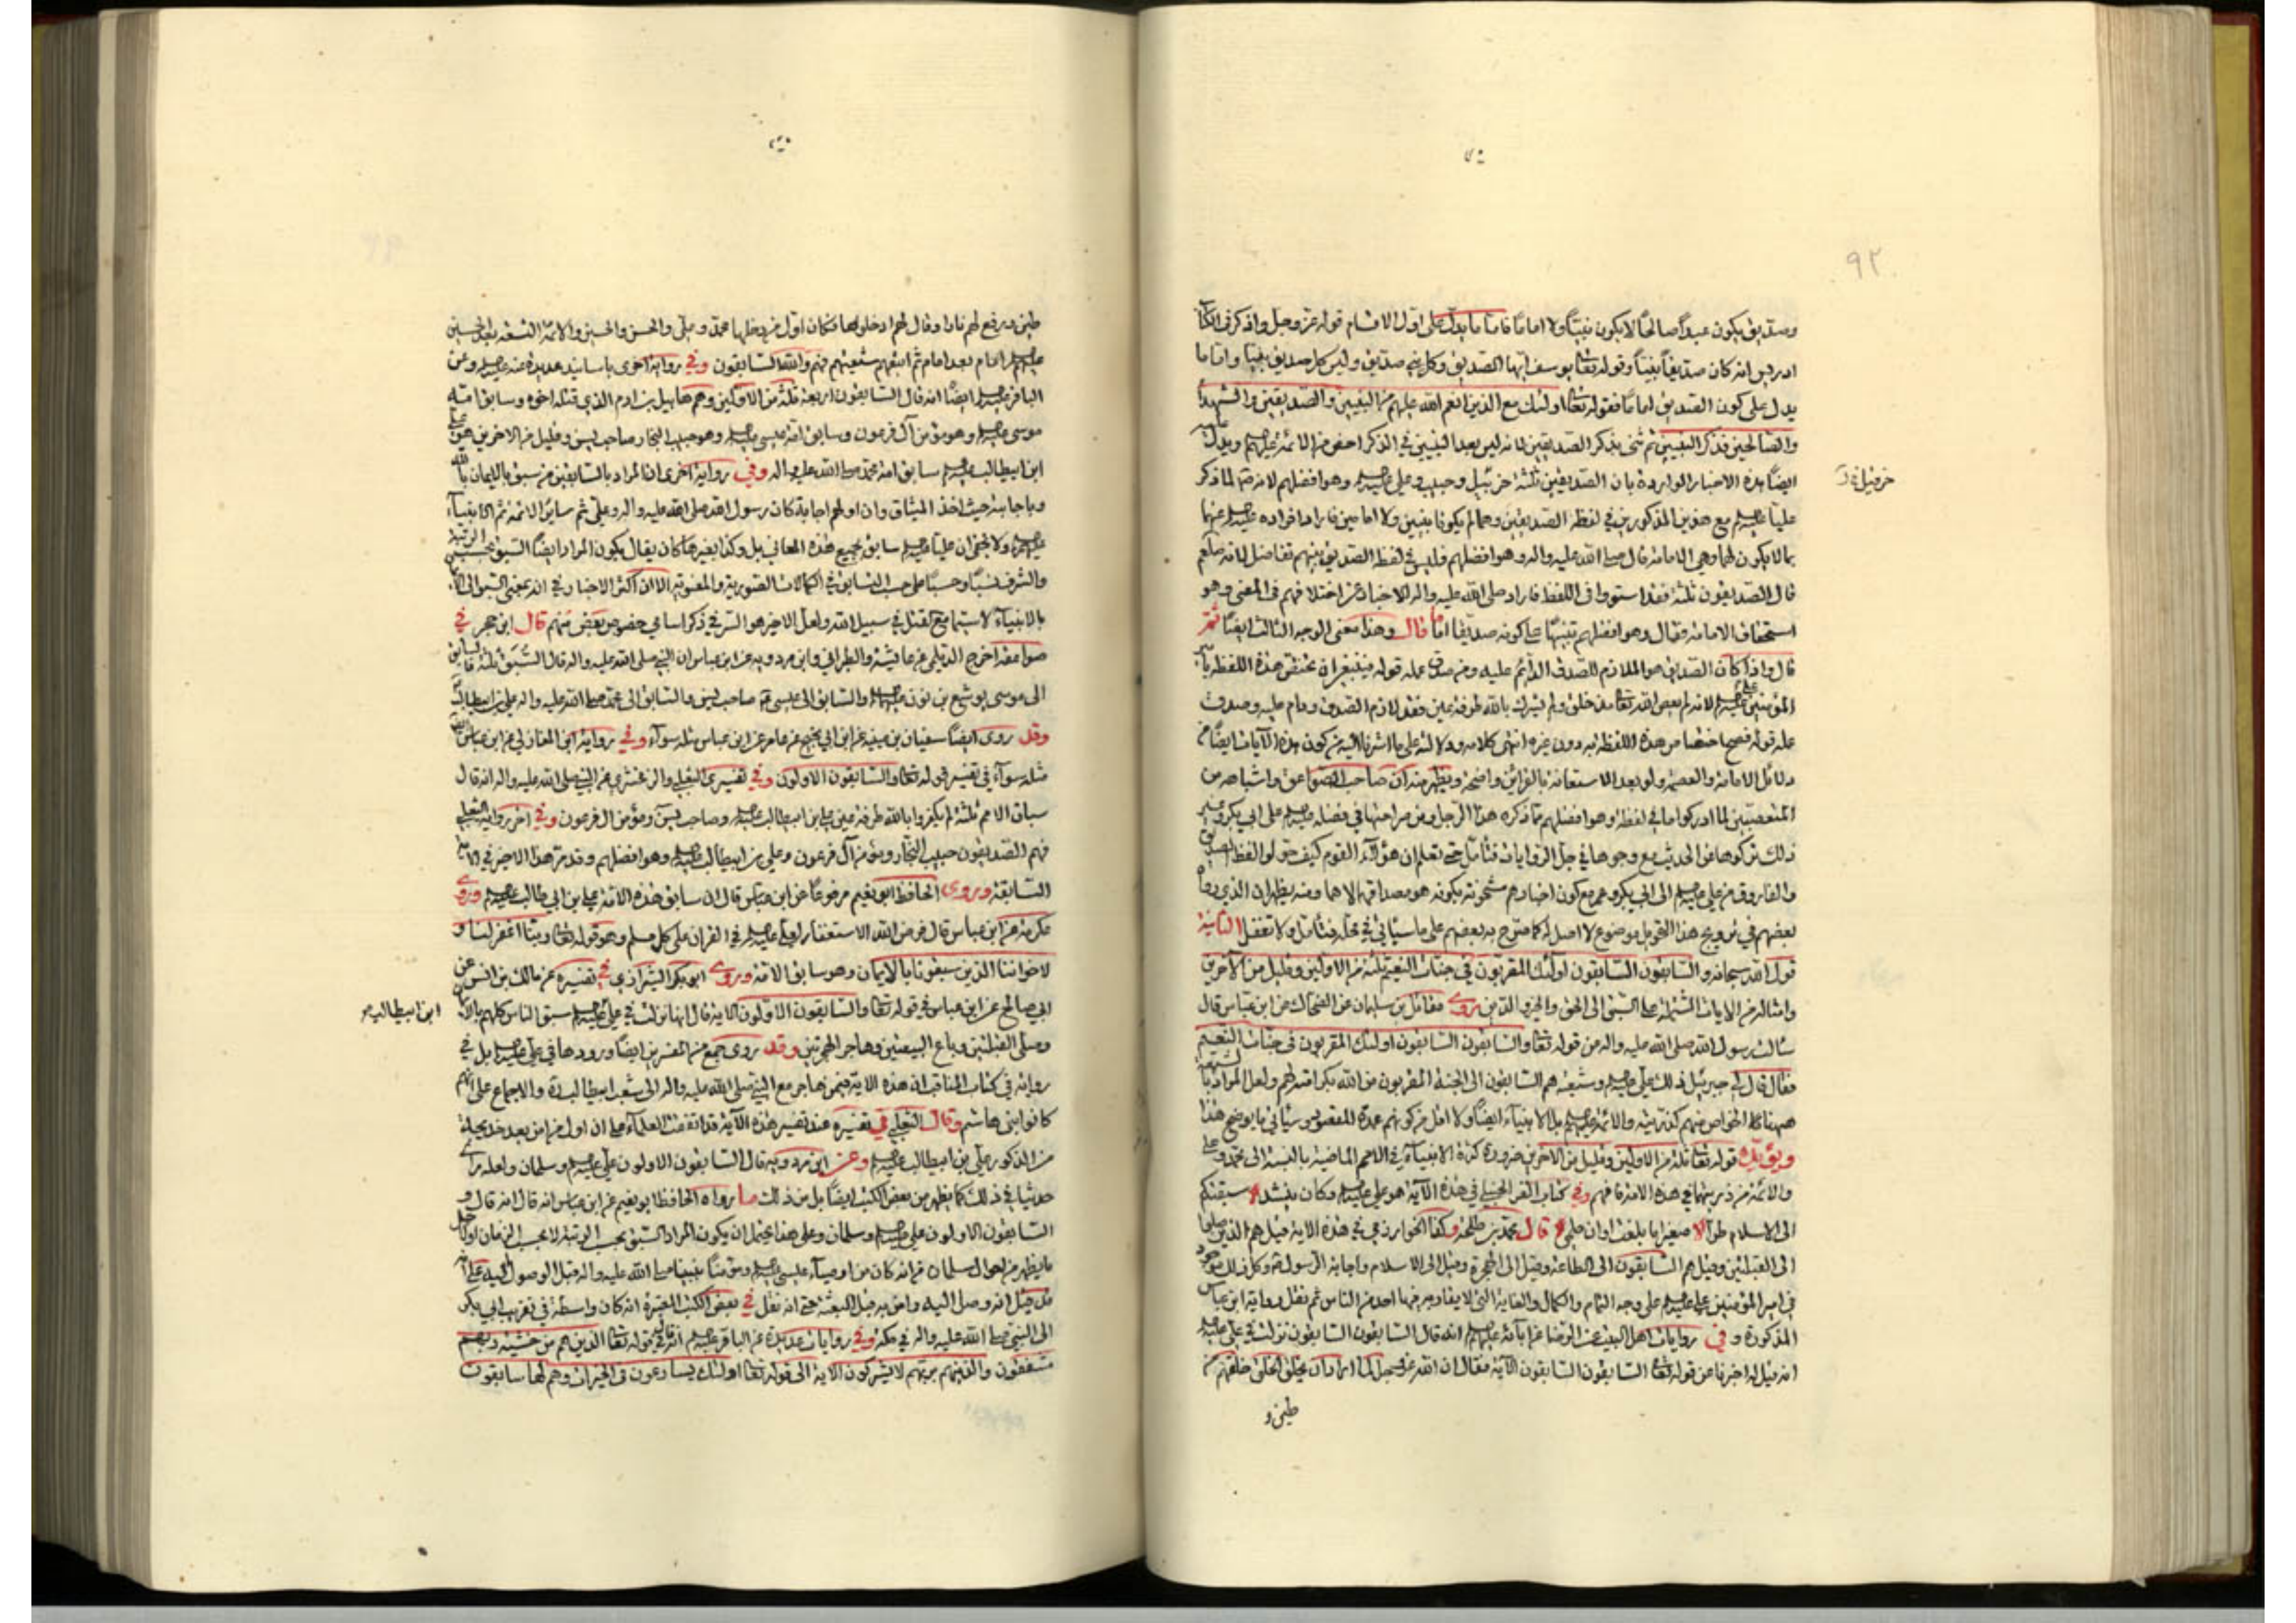 ٩٢
وصديق يكون عبداً صالحاً لا يكون نبيّاً ولا اماماً فامّا ما يدلّ على اوّل الاقسام قوله عزّ وجل واذكر في الكتاب
ادريس انه كان صديقاً نبيّاً وقوله تعا يوسف ايّها الصديق وكل نبي صديق وليس كل صديق نبيّا وامّا ما
يدل على كون الصديق اماماً فقوله تعا اولئك مع الذين انعم الله عليهم من النبيين والصديقين والشهداء
والصالحين فذكر النبيين ثم ثنى بذكر الصديقين لانه ليس بعد النبيين في الذكر اخص من الائمة عليهم ويدل
ايضاً هذه الاخبار الواردة بان الصديقين ثلثة حزبيل وحبيب وعلي وهو افضلهم لانه لما ذكر
خرقيل
عليّاً مع هذين المذكورين في لفظة الصديقين وهما لم يكونا نبيين ولا امامين فاراد افراده عنهما
بما لا يكون لهما وهي الامامة قال صلى الله عليه واله وهو افضلهم فليس في لفظ الصديق بينهم تفاضل لانه صلعم
قال الصديقون ثلثة فقد استووا في اللفظ فاراد صلى الله عليه واله الاخبار عن اختلافهم في المعنى وهو
استحقاق الامامة فقال وهو افضلهم تنبيهاً على كونه صديقا اماما قال وهذا معنى الوجه الثالث ايضاً ثمّ
قال واذا كان الصديق هو الملازم للصدق الدائم عليه ومن صدق عمله قوله فينبغي ان يختص هذه اللفظة بامير
المؤمنين علي لانه لم يعص الله تعا منذ خلق ولم يشرك بالله طرفة عين فقد لازم الصدق ودام عليه وصدق
عمله قوله فصح اختصاص هذه اللفظة به دون غيره انتهى كلامه ودلالته على ما اشرنا اليه من كون هذه الآيات ايضاً من
دلائل الامامة والعصمة ولو بعد الاستعانة بالقرائن واضحة ويظهر منه ان صاحب الصواعق واشباهه من
المتعصبين لما ادركوا ما في لفظة وهو افضلهم مما ذكره هذا الرجل ومن صراحتها في فضله على ابي بكر وغيره
ذلك تركوها من الحديث مع وجوها في جل الروايات فتأمل حتى تعلم ان هؤلاء القوم كيف حولوا لفظ الصديق
والفاروق من علي الى ابي بكر وعمر مع كون اخبارهم مشحونة بكونه هو مصداقهما لا هما ومنه يظهر ان الذي رواه
بعضهم في ترويج هذا التحويل موضوع لا اصل له كما صرّح به بعضهم على ما سيأتي في محله فتأمل ولا تغفل الثانية
قول الله سبحانه والسابقون السابقون اولئك المقربون في جنات النعيم ثلة من الاولين وقليل من الآخرين
وامثاله من الايات المشتملة على السبق الى الحق والخير والدين روى مقاتل بن سليمان عن الضحاك عن ابن عباس قال
سألت رسول الله صلى الله عليه واله من قوله تعا والسابقون السابقون اولئك المقربون في جنات النعيم
فقال قال لي جبرئيل ذلك علي وشيعته هم السابقون الى الجنة المقربون من الله بكرامته لهم ولعل المراد بالشيعة
ههنا الخواص منهم كذريته والائمة بل الانبياء ايضاً ولا اقل من كونهم عمدة المقصود وسيأتي ما يوضح هذا
ويؤيّده قوله تعا ثلة من الاولين وقليل من الآخرين ضرورة كثرة الانبياء في الامم الماضية بالنسبة الى محمد وعلي
والائمة من ذريتهما في هذه الامة فافهم وفي كتاب الفخر الحنبلي في هذه الآية هو علي وكان ينشد سبقتكم
الى الاسلام طرّا صغيرا ما بلغت اوان حلمي قال محمد بن طلحة وكذا الخوارزمي في هذه الآية قيل هم الذين صلوا
الى القبلتين وقيل هم السابقون الى الطاعة وقيل الى الهجرة وقيل الى الاسلام واجابة الرسول وكل ذلك موجود
في امير المؤمنين علي على وجه التمام والكمال والغاية التي لا يقاربه فيها احد من الناس ثم نقل رواية ابن عباس
المذكورة وفي روايات اهل البيت عن الرضا عن آبائه انه قال السابقون السابقون نزلت في علي
انه قيل له اخبرنا عن قوله تعا السابقون السابقون الآية فقال ان الله عزوجل لما اراد ان يخلق الخلق خلقهم من
طين و
طين ورفع لهم نارا وقال لهم ادخلوها فكان اوّل من دخلها محمّد وعلي والحسن والحسين والائمّة التسعة بعد الحسين
امام بعد امام ثم اتبعهم شيعتهم فهم والله السابقون وفي رواية اخرى باسانيد عديدة عنه وعن
الباقر ايضاً انه قال السابقون اربعة ثلثة من الاولين وهم هابيل بن ادم الذي قتله اخوه وسابق امّة
موسى وهو مؤمن آل فرعون وسابق امّة عيسى وهو حبيب النجار صاحب يس وقليل من الاخرين هو علي
ابن ابيطالب سابق امة محمّد صلى الله عليه واله وفي رواية اخرى ان المراد بالسابقين من سبق بالايمان بالله
وباجابته حيث اخذ الميثاق وان اولهم اجابة كان رسول الله صلى الله عليه واله وعلي ثم سائر الائمة ثم الانبياء
ولا يخفى ان عليّاً سابق بجميع هذه المعاني بل وكذا بغيرها كان يقال يكون المراد ايضاً السبق بحسب الرتبة
والشرف نسبًا وحسبًا على حسب السابق في الكمالات الصورية والمعنوية الا ان اكثر الاخبار في انه بمعنى السبق الى الايمان
بالانبياء لا سيّما مع القتل في سبيل الله ولعل الاخير هو السر في ذكر اسامي خصوص بعض منهم قال ابن حجر في
صواعقه اخرج الديلمي عن عائشة والطبراني وابن مردويه عن ابن عباس ان النبي صلى الله عليه واله قال السّبق ثلثة فالسابق
الى موسى يوشع بن نون والسابق الى عيسى صاحب يس والسابق الى محمّد صلى الله عليه واله علي بن ابيطالب
وقد روى ايضاً سفيان بن عيينة عن ابن ابي نجيح عن عامر عن ابن عباس مثله سوآء وفي رواية ابن المغازلي عن ابن عباس ايضاً
مثله سوآء في تفسير قوله تعا والسابقون الاولون وفي تفسيري الثعلبي والزمخشري عن النبي صلى الله عليه واله انه قال
سباق الامم ثلثة لم يكفروا بالله طرفة عين علي بن ابيطالب وصاحب يس ومؤمن ال فرعون وفي اخر رواية الثعلبي
فهم الصديقون حبيب النجار ومؤمن آل فرعون وعلي بن ابيطالب وهو افضلهم وقد مرّ هذا الاخير في الآية
السابقة وروى الحافظ ابو نعيم مرفوعاً عن ابن عباس قال ان سابق هذه الامّة علي بن ابي طالب وروى
عكرمة عن ابن عباس قال فرض الله الاستغفار لعلي في القران على كل مسلم وهو قوله تعا ربنا اغفر لنا و
لاخواننا الذين سبقونا بالايمان وهو سابق الامّة وروى ابو بكر الشيرازي في تفسيره عن مالك بن انس عن
ابي صالح عن ابن عباس في قوله تعا والسابقون الاولون الآية قال انها نزلت في علي سبق الناس كلهم بالايمان
ابن ابيطالب
وصلّى القبلتين وبايع البيعتين وهاجر الهجرتين وقد روى جمع من المفسرين ايضاً ورودها في علي بل في
رواية في كتاب المناقب ان هذه الاية فيمن هاجر مع النبي صلى الله عليه واله الى شعب ابيطالب والاجماع على انهم
كانوا بني هاشم وقال الثعلبي في تفسيره عند تفسير هذه الآية قد اتفقت العلماء على ان اول من امن بعد خديجة
من الذكور علي بن ابيطالب وعن ابن مردويه قال السابقون الاولون علي وسلمان ولعله رأى
حديثا في ذلك كما يظهر من بعض الكتب ايضاً بل من ذلك ما رواه الحافظ ابو نعيم عن ابن عباس انه قال انه قال و
السابقون الاولون علي وسلمان وعلى هذا يحتمل ان يكون المراد السبق بحسب الرتبة لا بحسب الزمان
ما يظهر من احوال سلمان من انه كان من اوصياء عيسى ومؤمناً بنبينا صلى الله عليه واله قبل الوصول اليه على انه
قد قيل انه وصل اليه وامن به قبل البعثة حتى انه نقل في بعض الكتب المعتبرة انه كان واسطة في تقريب ابي بكر
الى النبي صلى الله عليه واله في مكة وفي روايات عديدة عن الباقر انه قال في قوله تعا الذين هم من خشية ربهم
مشفقون والذين هم بربهم لا يشركون الاية الى قوله تعا اولئك يسارعون في الخيرات وهم لها سابقون